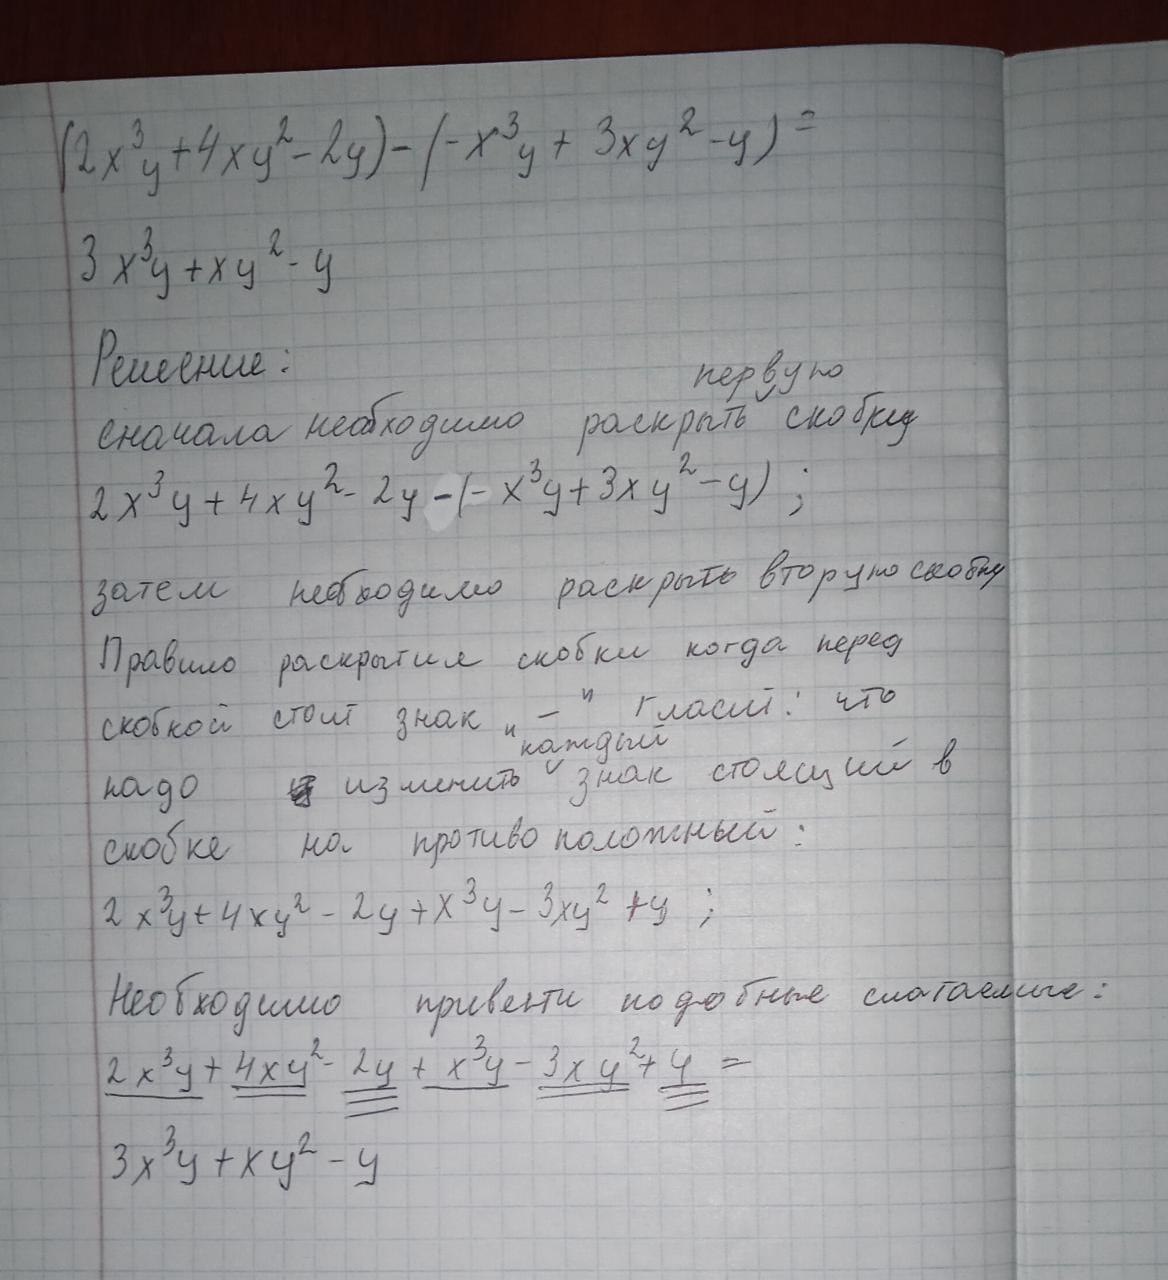 (2x³y+4xy²-2y)-(-x³y+3xy²-y)=
3x³y+xy²-y
Решение:
первую
сначала необходимо раскрыть скобку
2x³y+4xy²-2y-(-x³y+3xy²-y);
затем необходимо раскрыть вторую скобку
Правило раскрытия скобки когда перед
скобкой стоит знак „–" гласит: что
каждый
надо изменить знак стоящий в
скобке на противоположный:
2x³y+4xy²-2y+x³y-3xy²+y;
Необходимо привести подобные слагаемые:
2x³y+4xy²-2y+x³y-3xy²+y=
3x³y+xy²-y